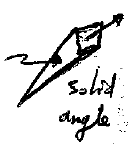 solid
angle